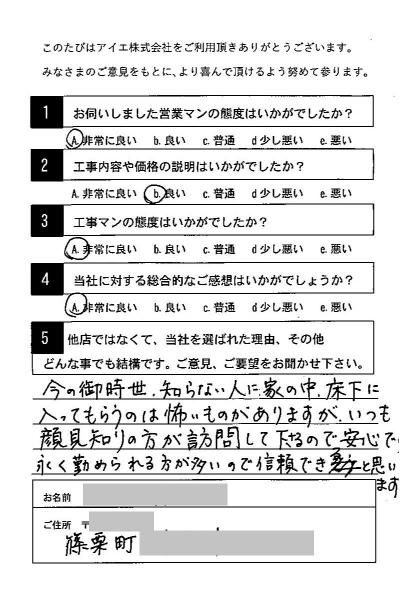 このたびはアイエ株式会社をご利用頂きありがとうございます。
みなさまのご意見をもとに、より喜んで頂けるよう努めて参ります。
1 お伺いしました営業マンの態度はいかがでしたか？
A.非常に良い b.良い c.普通 d少し悪い e.悪い
2 工事内容や価格の説明はいかがでしたか？
A.非常に良い b.良い c.普通 d少し悪い e.悪い
3 工事マンの態度はいかがでしたか？
A.非常に良い b.良い c.普通 d少し悪い e.悪い
4 当社に対する総合的なご感想はいかがでしょうか？
A.非常に良い b.良い c.普通 d少し悪い e.悪い
5 他店ではなくて、当社を選ばれた理由、その他
どんな事でも結構です。ご意見、ご要望をお聞かせ下さい。
今の御時世、知らない人に家の中、床下に
入ってもらうのは怖いものがありますが、いつも
顔見知りの方が訪問して下さるので安心で
永く勤められる方が多いので信頼でき と思い
ます
お名前
ご住所 〒
篠栗町